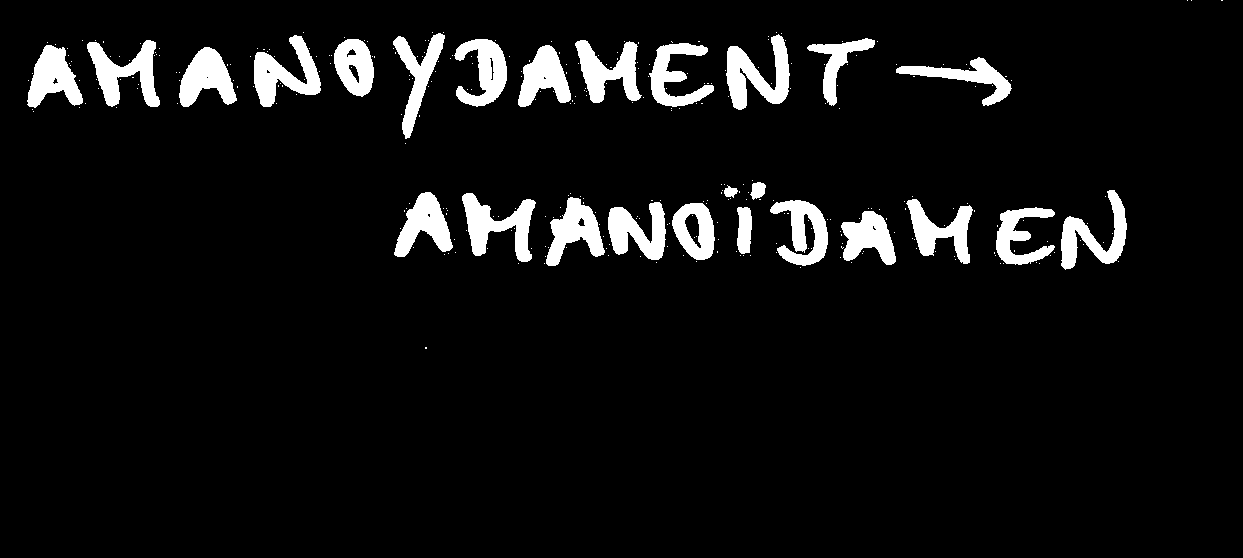 AMANOYDAMENT →
AMANOÏDAMEN